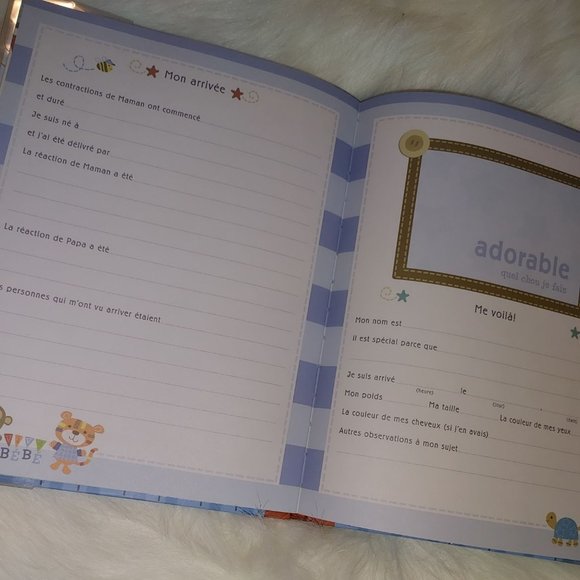 Mon arrivée
Les contractions de Maman ont commencé
et duré
Je suis né à
et j'ai été délivré par
La réaction de Maman a été
La réaction de Papa a été
personnes qui m'ont vu arriver étaient
BÉBÉ
adorable
quel chou je fais
Me voilà!
Mon nom est
Il est spécial parce que
Je suis arrivé le ,
(heure) (jour) (date)
Mon poids Ma taille La couleur de mes yeux
La couleur de mes cheveux (si j'en avais)
Autres observations à mon sujet